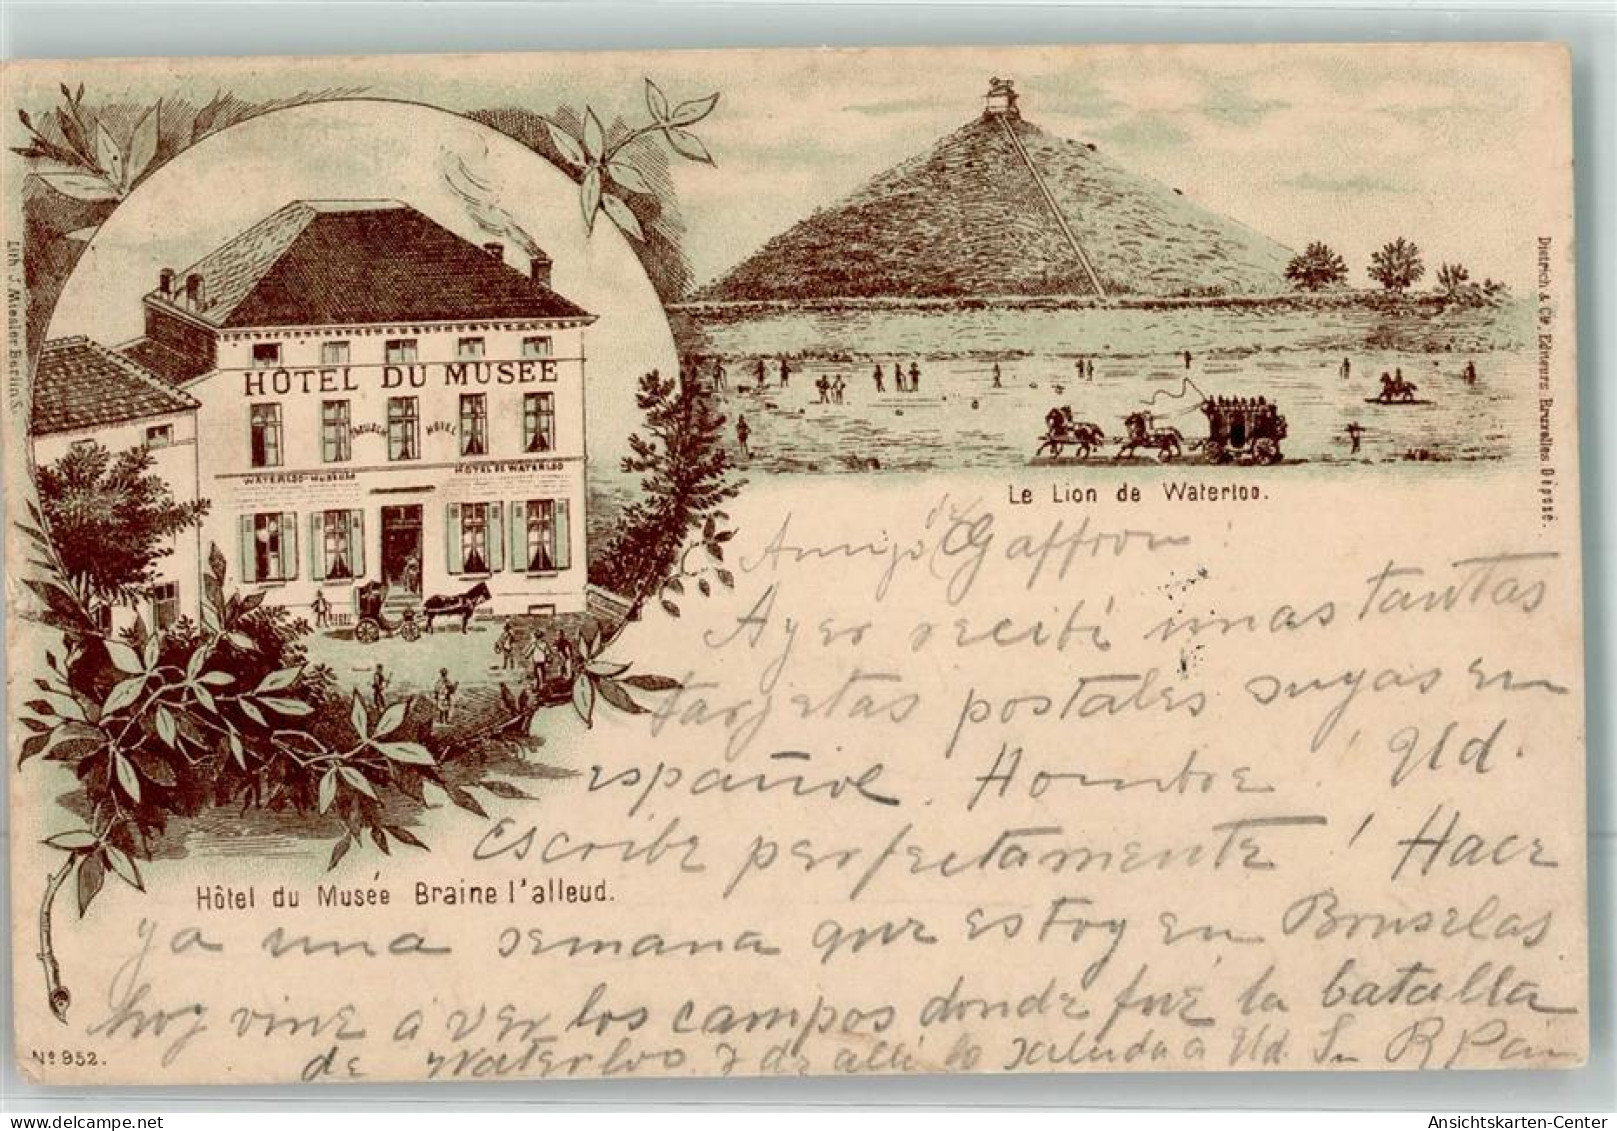 HÔTEL DU MUSÉE
MUSÉUM HÔTEL
WATERLOO-MUSEUM
HÔTEL DE WATERLOO
Hôtel du Musée Braine l'alleud.
Le Lion de Waterloo.
Lith. J. Miesler Berlin S.
Dietrich & Cie, Editeurs Bruxelles Déposé.
Nº 952.
Amigo de Gaffron!
Ayer recibí unas tantas
tarjetas postales suyas en
español. Hombre! Ud.
Escribe perfectamente! Hace
ya una semana que estoy en Bruselas
hoy vine á ver los campos donde fué la batalla
de Waterloo y de allí lo saluda a Ud. Su
Ansichtskarten-Center